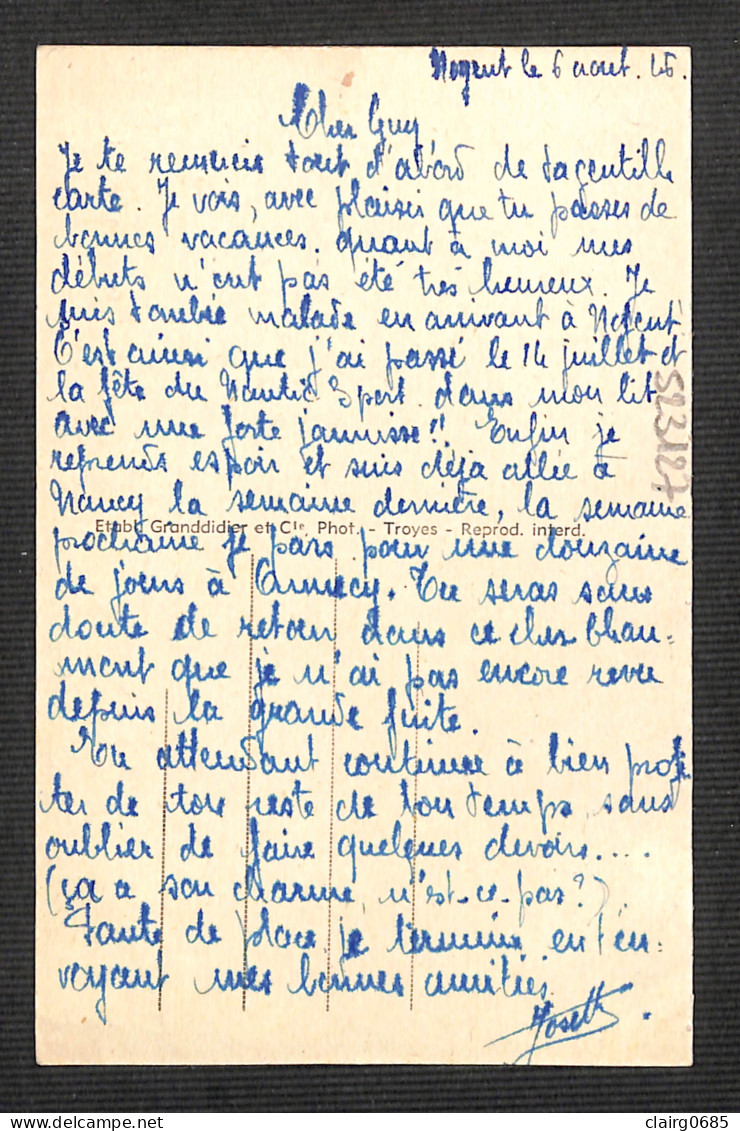 Nogent le 6 aout. 46.
Cher Guy
Je te remercie tout d'abord de ta gentille
carte. Je vois, avec plaisir que tu passes de
bonnes vacances. quant à moi mes
débuts n'ont pas été très heureux. Je
suis tombée malade en arrivant à Nogent.
C'est ainsi que j'ai passé le 14 juillet et
la fête du Nautic Sport dans mon lit
avec une forte jaunisse!! Enfin je
reprends espoir et suis déjà allée à
Nancy la semaine dernière, la semaine
Etabl. Granddidier et Cie Phot. - Troyes - Reprod. interd.
prochaine je pars pour une douzaine
de jours à Annecy. Tu seras sans
doute de retour dans ce cher Chau-
mont que je n'ai pas encore revu
depuis la grande fuite.
En attendant continue à bien profi
ter de ton reste de bon temps sans
oublier de faire quelques devoirs....
(ça a son charme n'est-ce-pas?).
Faute de place je termine en t'en-
voyant mes bonnes amitiés.
Josette
S23127
clairg0685